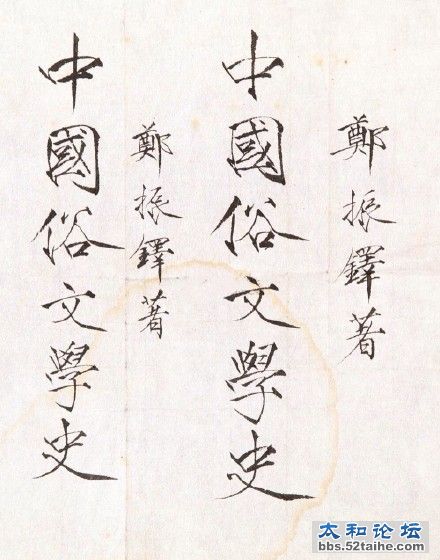 鄭振鐸著
中國俗文學史
鄭振鐸著
中國俗文學史
太和论坛
bbs.52taihe.com